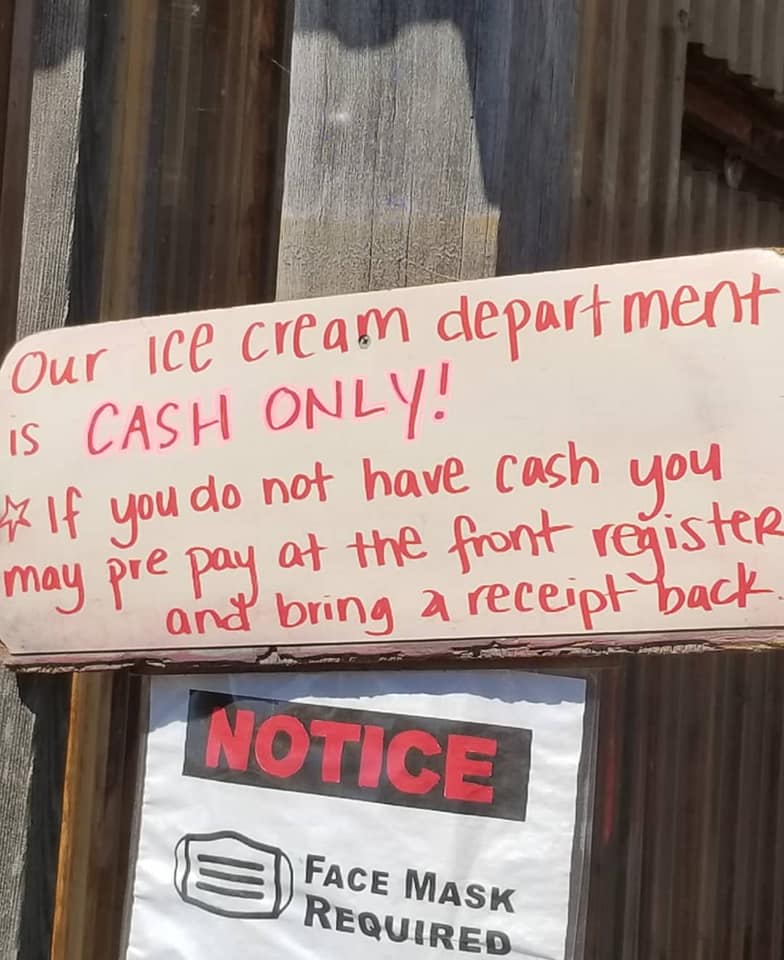 Our ice cream department
is CASH ONLY!
☆ If you do not have cash you
may pre pay at the front register
and bring a receipt back.
NOTICE
FACE MASK
REQUIRED